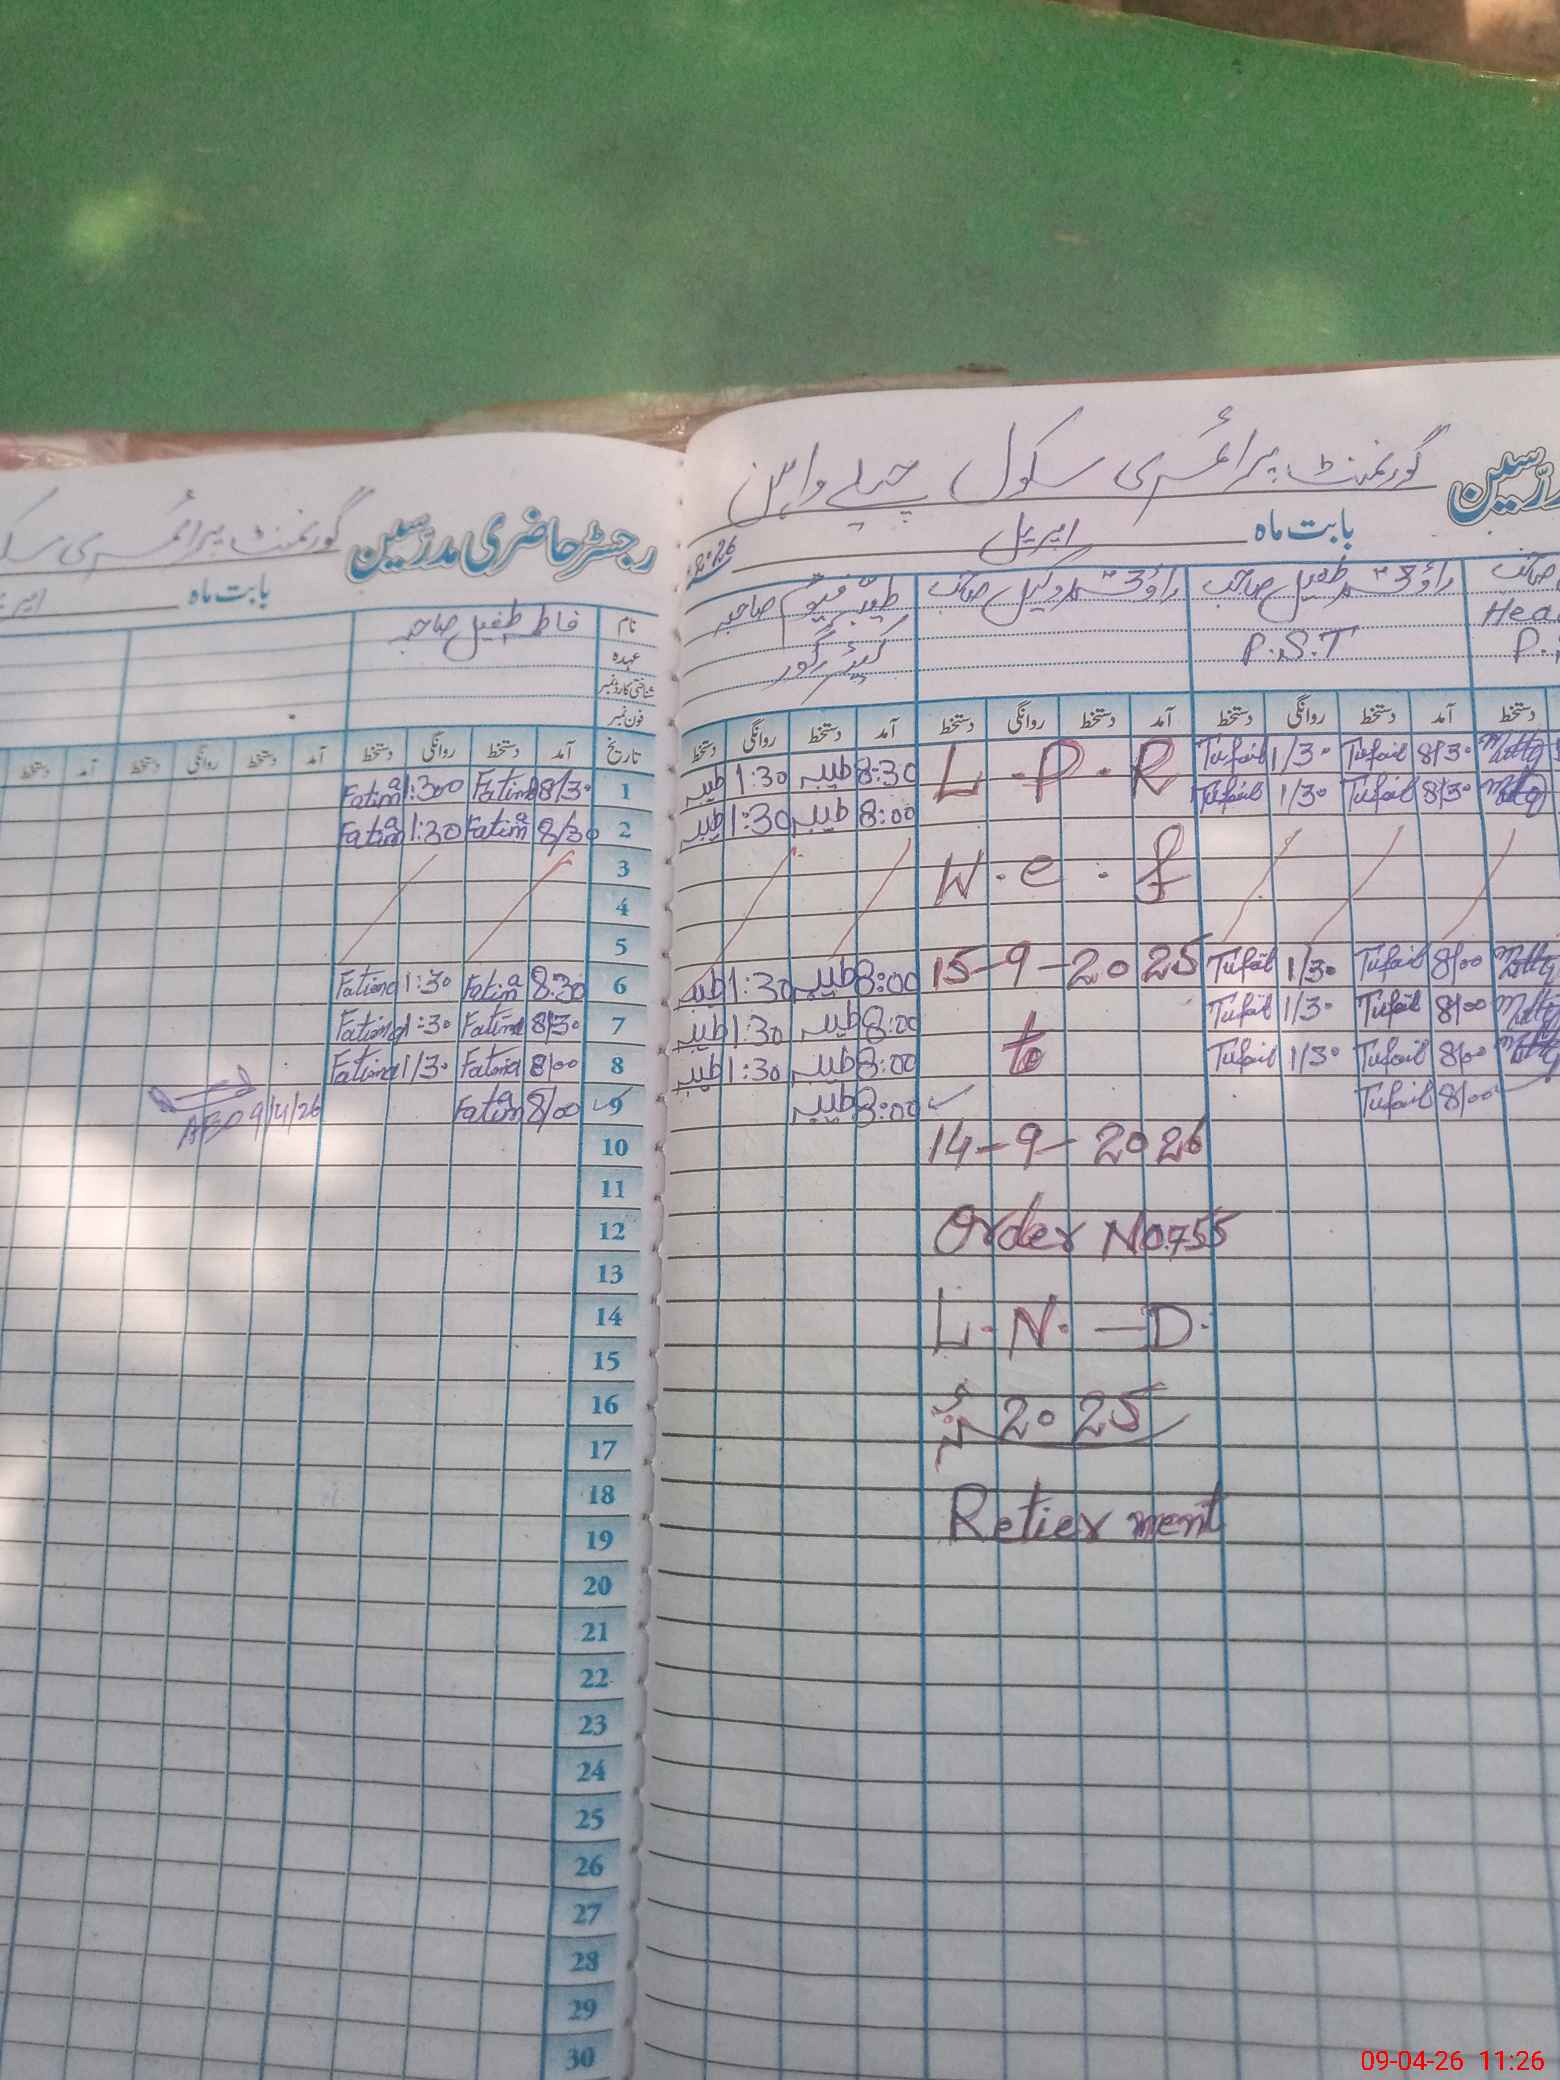 رجسٹر حاضری مدرسین گورنمنٹ پرائمری
بابت ماہ
نام فاطمہ طفیل صاحبہ
عہدہ
شناختی کارڈ نمبر
فون نمبر
تاریخ آمد دستخط روانگی دستخط آمد دستخط روانگی دستخط آمد دستخط
1 8/30 Fatima 1:300 Fatima
2 8/30 Fatima 1:30 Fatima
3
4
5
6 8:30 Fatima 1:30 Fatima
7 8/30 Fatima 1:30 Fatima
8 8/00 Fatima 1/30 Fatima
9 8/00 Fatima
9/4/26
10
11
12
13
14
15
16
17
18
19
20
21
22
23
24
25
26
27
28
29
30
گورنمنٹ پرائمری سکول
بابت ماہ اپریل
راؤ محمد طفیل صاحب راؤ محمد وکیل صاحب طیبہ قیوم صاحبہ
P.S.T کیئر گور
دستخط آمد دستخط روانگی دستخط آمد دستخط روانگی دستخط آمد دستخط روانگی دستخط
8/30 Tufail 1/30 Tufail L.P.R 8:30 طیبہ 1:30 طیبہ
8/30 Tufail 1/30 Tufail 8:00 طیبہ 1:30 طیبہ
W.e.f
8/00 Tufail 1/30 Tufail 15-9-2025 8:00 طیبہ 1:30 طیبہ
8/00 Tufail 1/30 Tufail 8:00 طیبہ 1:30 طیبہ
8/00 Tufail 1/30 Tufail to 8:00 طیبہ 1:30 طیبہ
8/00 Tufail 8:00 طیبہ
14-9-2026
Order No.755
L.N.-D.
2025
Retierment
09-04-26 11:26